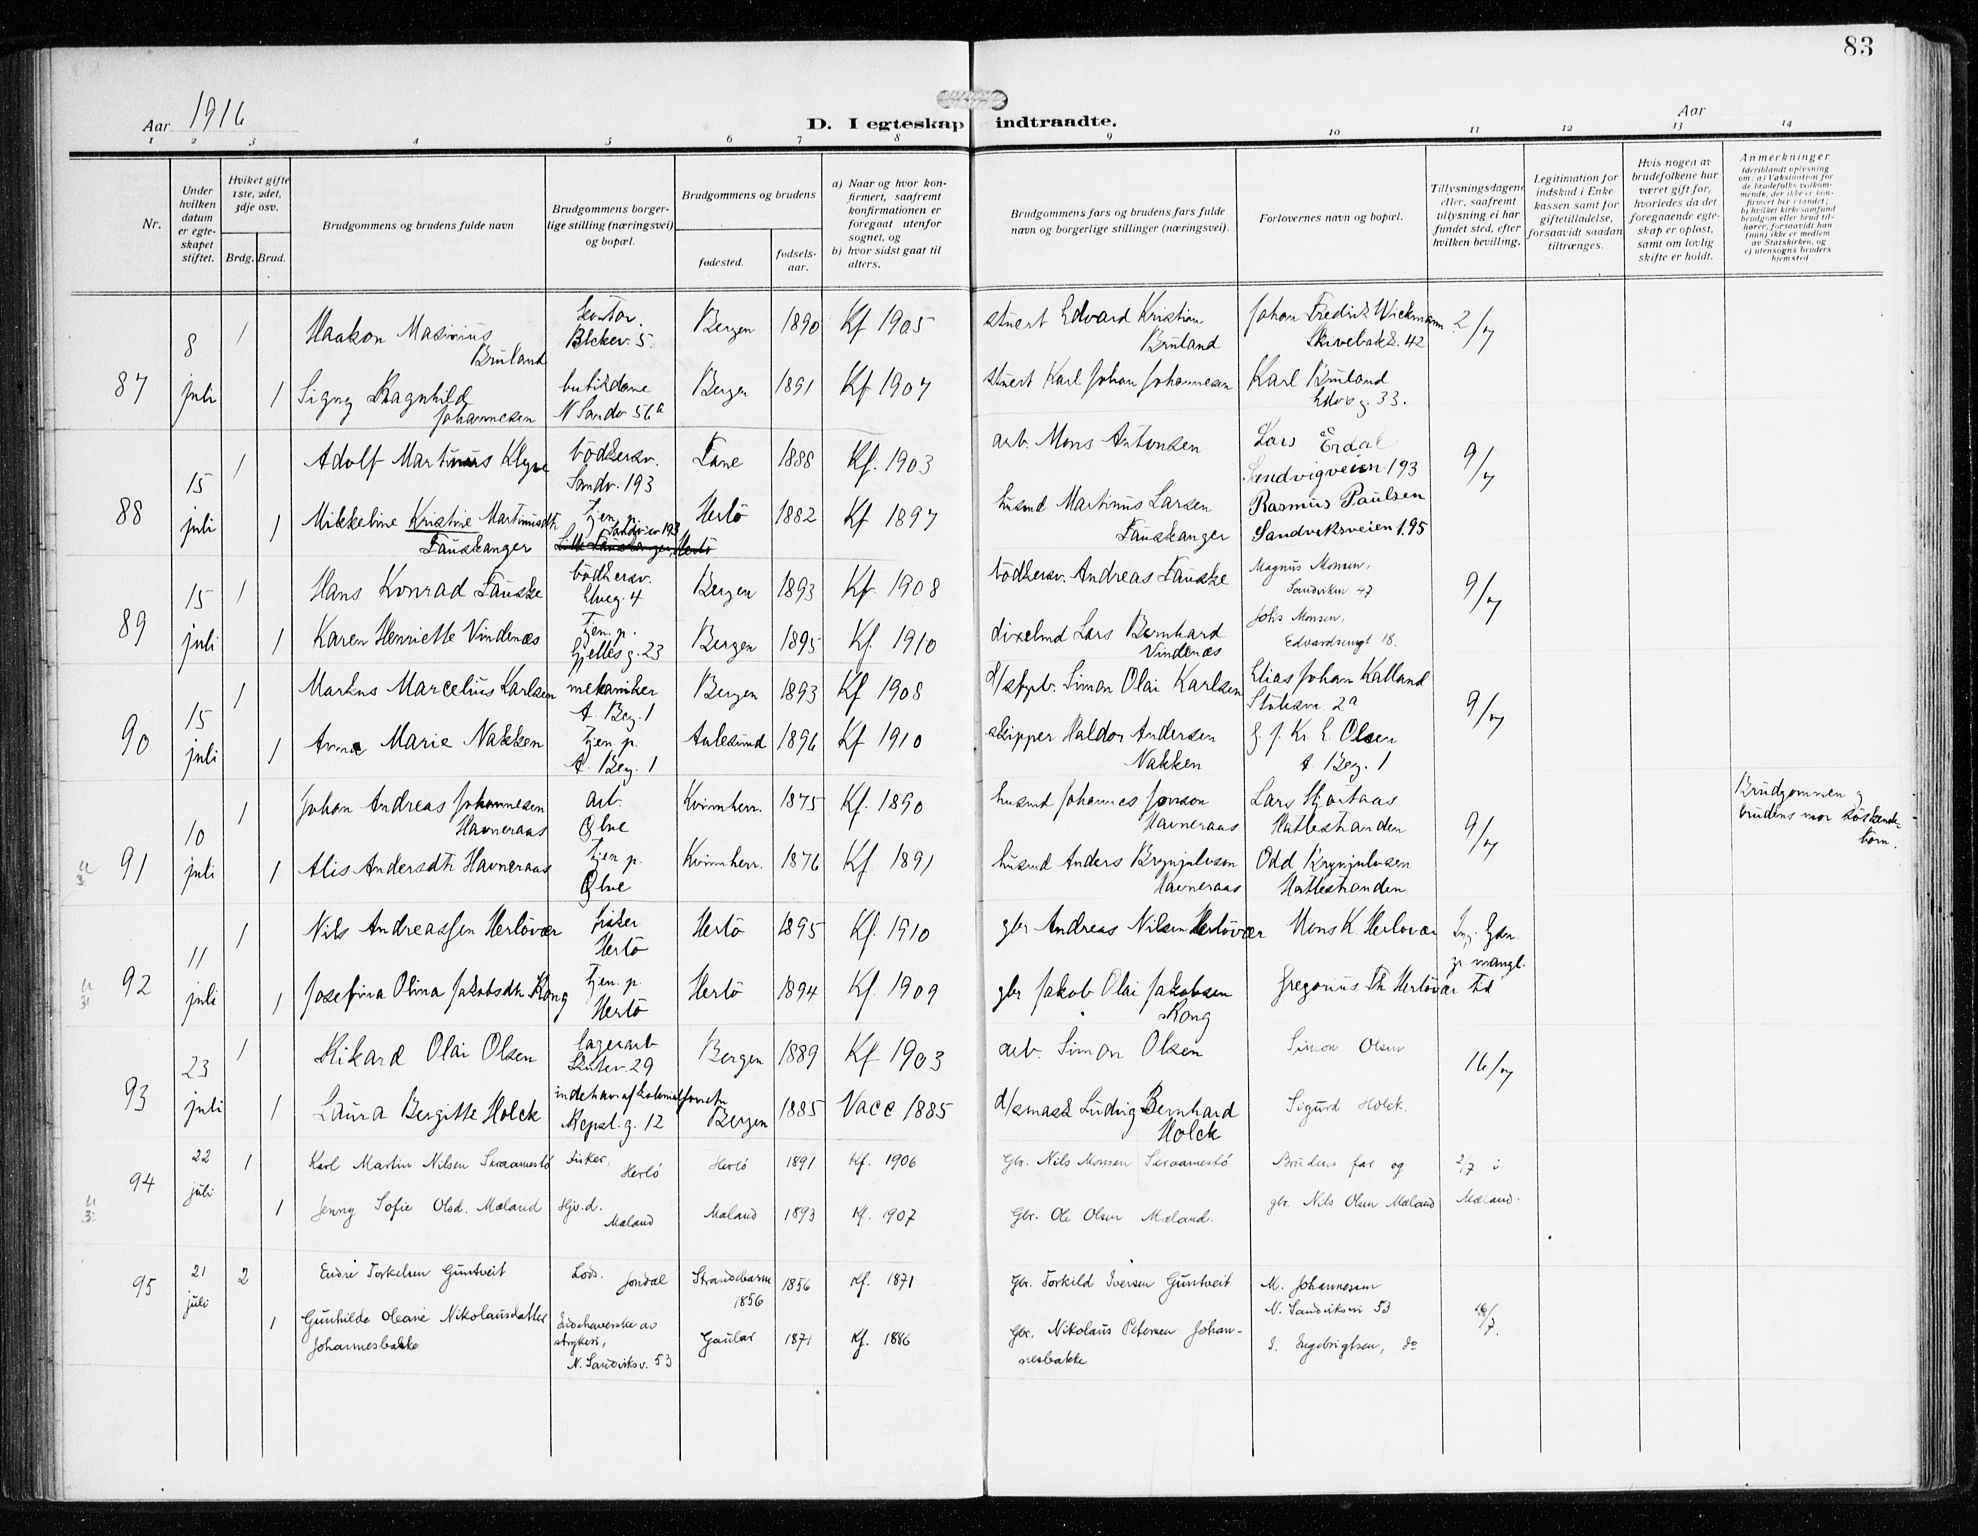 83
Aar 1916
D. I egteskap indtraadte.
Aar
1 2 3 4 5 6 7 8 9 10 11 12 13 14
Nr.
Under hvilken datum er egteskapet stiftet.
Hvilket gifte 1ste, 2det, 3dje osv.
Brdg. Brud.
Brudgommens og brudens fulde navn
Brudgommens borgerlige stilling (næringsvei) og bopæl.
Brudgommens og brudens
fødested.
fødselsaar.
a) Naar og hvor konfirmert, saafremt konfirmationen er foregaat utenfor sognet, og
b) hvor sidst gaat til alters.
Brudgommens fars og brudens fars fulde navn og borgerlige stillinger (næringsvei).
Forlovernes navn og bopæl.
Tillysningsdagene eller, saafremt tillysning ei har fundet sted, efter hvilken bevilling.
Legitimation for indskud i Enkekassen samt for giftetilladelse, forsaavidt saadan tiltrænges.
Hvis nogen av brudefolkene har været gift før, hvorledes da det foregaaende egteskap er opløst, samt om lovlig skifte er holdt.
Anmerkninger
87 8 juli
1 Haakon Masivius Bruland kontor. Blekev. 5. Bergen 1890 Kf 1905 stuert Edvard Kristian Bruland Johan Fredrik Wickmann Skivebakk. 42 2/7
1 Signy Ragnhild Johannesen butikdame N Sandv 56a Bergen 1891 Kf 1907 stuert Karl Johan Johannesen Karl Bruland Edv. g. 33.
88 15 juli
1 Adolf Martinus Klyve bödkersv. Sandv. 193 Fane 1888 Kf. 1903 arb. Mons Antonsen Lars Erdal Sandvigveien 193 9/7
1 Mikkeline Kristine Martinusdtr Fauskanger tjen. p. Sandv. 193 Lille Fauskanger, Herlö Herlö 1882 Kf 1897 husmd Martinus Larsen Fauskanger Rasmus Paulsen Sandviksveien 195
89 15 juli
1 Hans Konrad Fauske bödkersv. Elveg. 4 Bergen 1893 Kf. 1908 bödkersv. Andreas Fauske Magnus Monsen, Sandviken 47 9/7
1 Karen Henriette Vindenæs Tjen. p. Gjelles g. 23 Bergen 1895 Kf. 1910 dixelmd Lars Bernhard Vindenæs Johs Monsen, Edvardsensgt 18.
90 15 juli
1 Markus Marcelius Karlsen mekaniker A. Beg. 1 Bergen 1893 Kf 1908 Simon Olai Karlsen Elias Johan Kalland 2a 9/7
1 Anna Marie Nakken tjen p. A. Beg. 1 Aalesund 1896 Kf 1910 skipper Haldor Andersen Nakken g. f. Kr. E. Olsen A Beg. 1
91 10 juli
1 Johan Andreas Johannesen Havneraas arb. Ølve Kvinnherr. 1875 Kf. 1890 husmd Johannes Jonson Havneraas Lars Hjortaas Hattestranden 9/7 Brudgommen og brudens mor söskendebörn.
1 Alis Andersdtr Havneraas tjen p. Ølve Kvinnherr. 1876 Kf. 1891 husmd Anders Brynjulvson Havneraas Odd Brynjulvsen Hattestranden
92 11 juli
1 Nils Andreassen Herlövær fisker Herlö Herlö 1895 Kf. 1910 gbr Andreas Nilsen Herlövær Mons K. Herlövær Ing. lysn. gr. mangl. tid
1 Josefina Olina Jakobsdtr Kong tjen. p. Herlö Herlö 1894 Kf. 1909 gbr Jakob Olai Jakobsen Kong Gregorius Th Herlövær
93 23 juli
1 Rikard Olai Olsen lagerarb Skutev. 29 Bergen 1889 Kf 1903 arb. Simon Olsen Simon Olsen 16/7
1 Laura Bergitte Holck indehav af kolonialforretn Repsl. g. 12 Bergen 1885 Vacc 1885 d/smask Ludvig Bernhard Holck Sigurd Holck.
94 22 juli
1 Karl Martin Nilsen Skraamestö Fisker, Herlö Herlö 1891 Kf. 1906 Gbr. Nils Monsen Skraamestö Brudens far og 2/7 i
1 Jenny Sofie Olsd. Mæland Hjv. d. Mæland Mæland 1893 Kf. 1907 Gbr. Ole Olsen Mæland. gbr. Nils Olsen Mæland Mæland.
95 21 juli
2 Endre Torkelsen Guntveit Lods. Jondal Strandebarm 1856 1856 Kf. 1871 Gbr. Torkild Iversen Guntveit M. Johannessen N. Sandviksvei 53 16/7.
1 Gunhilde Oleane Nikolausdatter Johannesbakke Indehaverske av strykeri, N. Sandviksv. 53 Gaular 1871 Kf. 1886 Gbr. Nikolaus Petersen Johannesbakke I. Ingebrigtsen, do